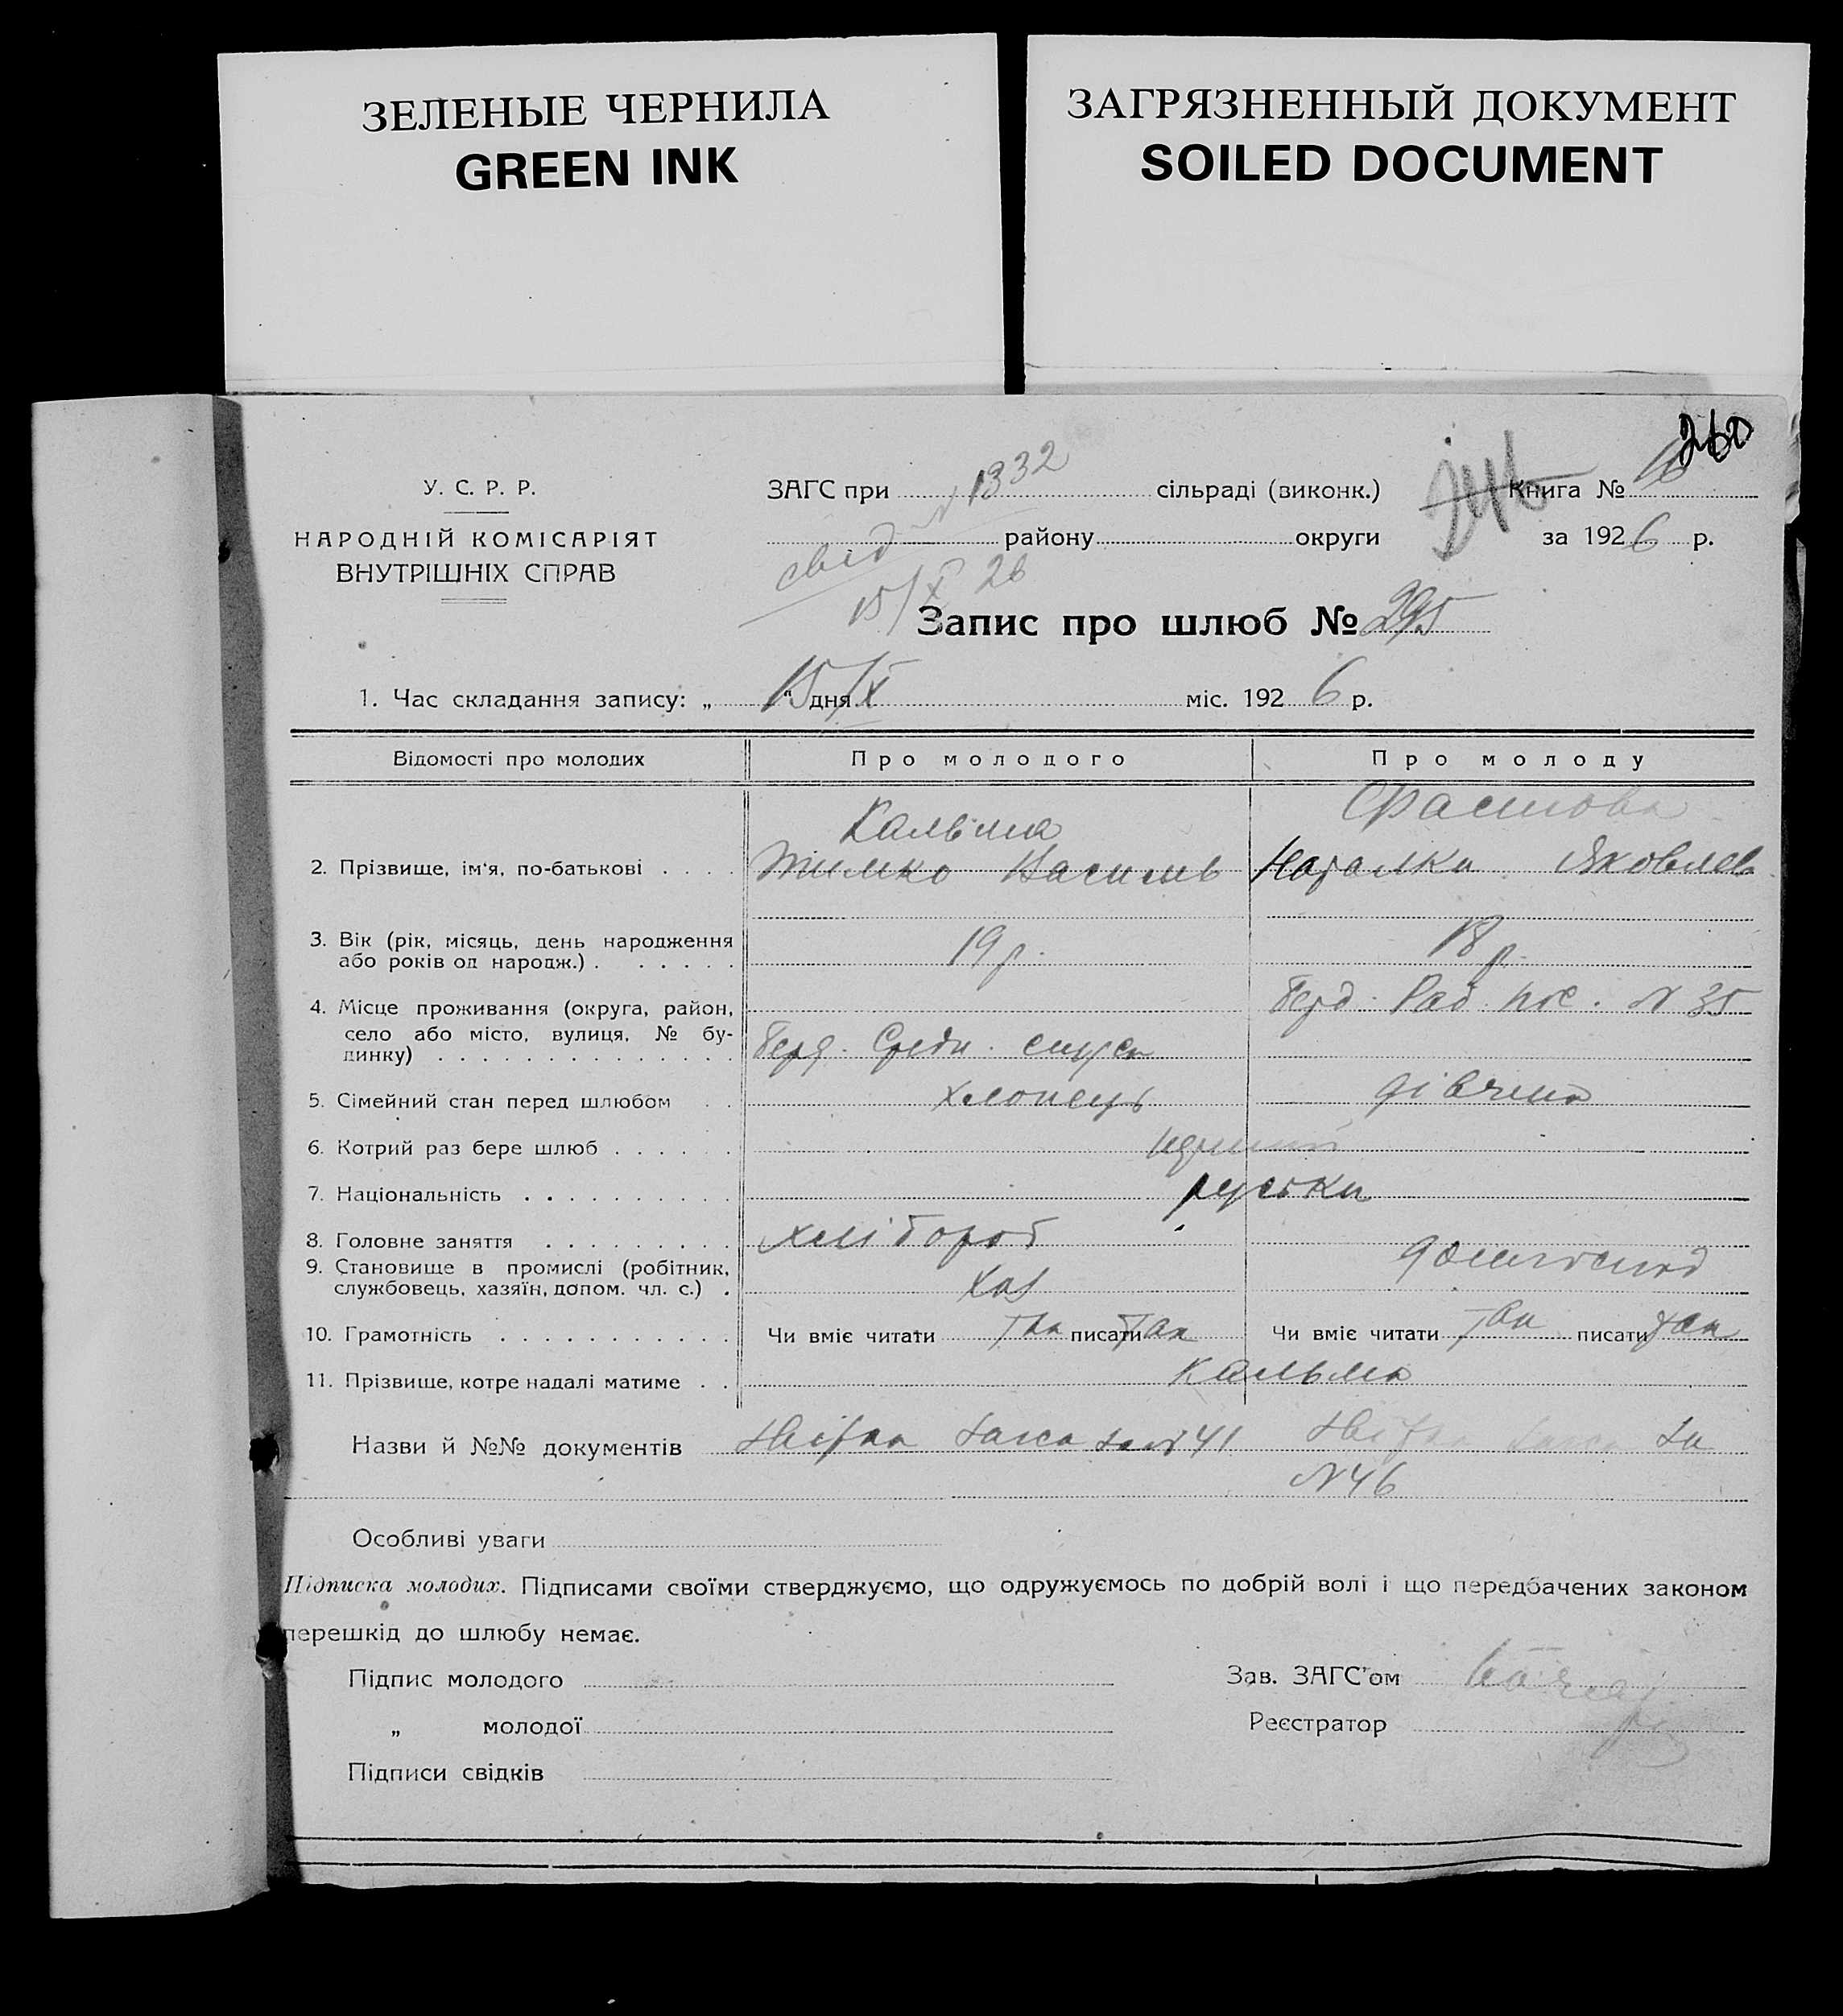 ЗЕЛЕНЫЕ ЧЕРНИЛА
GREEN INK
ЗАГРЯЗНЕННЫЙ ДОКУМЕНТ
SOILED DOCUMENT
260
У. С. Р. Р.
НАРОДНІЙ КОМІСАРІЯТ
ВНУТРІШНІХ СПРАВ
ЗАГС при 1332 сільраді (виконк.)
Книга №
свід району округи
за 1926 р.
15/X 26
Запис про шлюб № 295
1. Час складання запису: „ 15 “ дня /X міс. 1926 р.
Відомості про молодих Про молодого Про молоду
Кальма
2. Прізвище, ім'я, по-батькові . . . . Тимко Василів Наталка Яковлев
3. Вік (рік, місяць, день народження
або років од народж.) . . . . . . 19 р. 18 р.
4. Місце проживання (округа, район, Берд. Раб. пос. N 35
село або місто, вулиця, № бу-
динку) . . . . . . . . . . . . . . Берд. Средн.
5. Сімейний стан перед шлюбом . . хлопець дівчина
6. Котрий раз бере шлюб . . . . . . перший
7. Національність . . . . . . . . . . руськи
8. Головне заняття . . . . . . . . . хлібороб
9. Становище в промислі (робітник,
службовець, хазяїн, допом. чл. с.) . хаз домогоспод
10. Грамотність . . . . . . . . . . . Чи вміє читати так писати так Чи вміє читати так писати так
11. Прізвище, котре надалі матиме . . Кальма
Назви й №№ документів 41 за
N 46
Особливі уваги
Підписка молодих. Підписами своїми стверджуємо, що одружуємось по добрій волі і що передбачених законом
перешкід до шлюбу немає.
Підпис молодого
Зав. ЗАГС'ом
„ молодої
Реєстратор
Підписи свідків